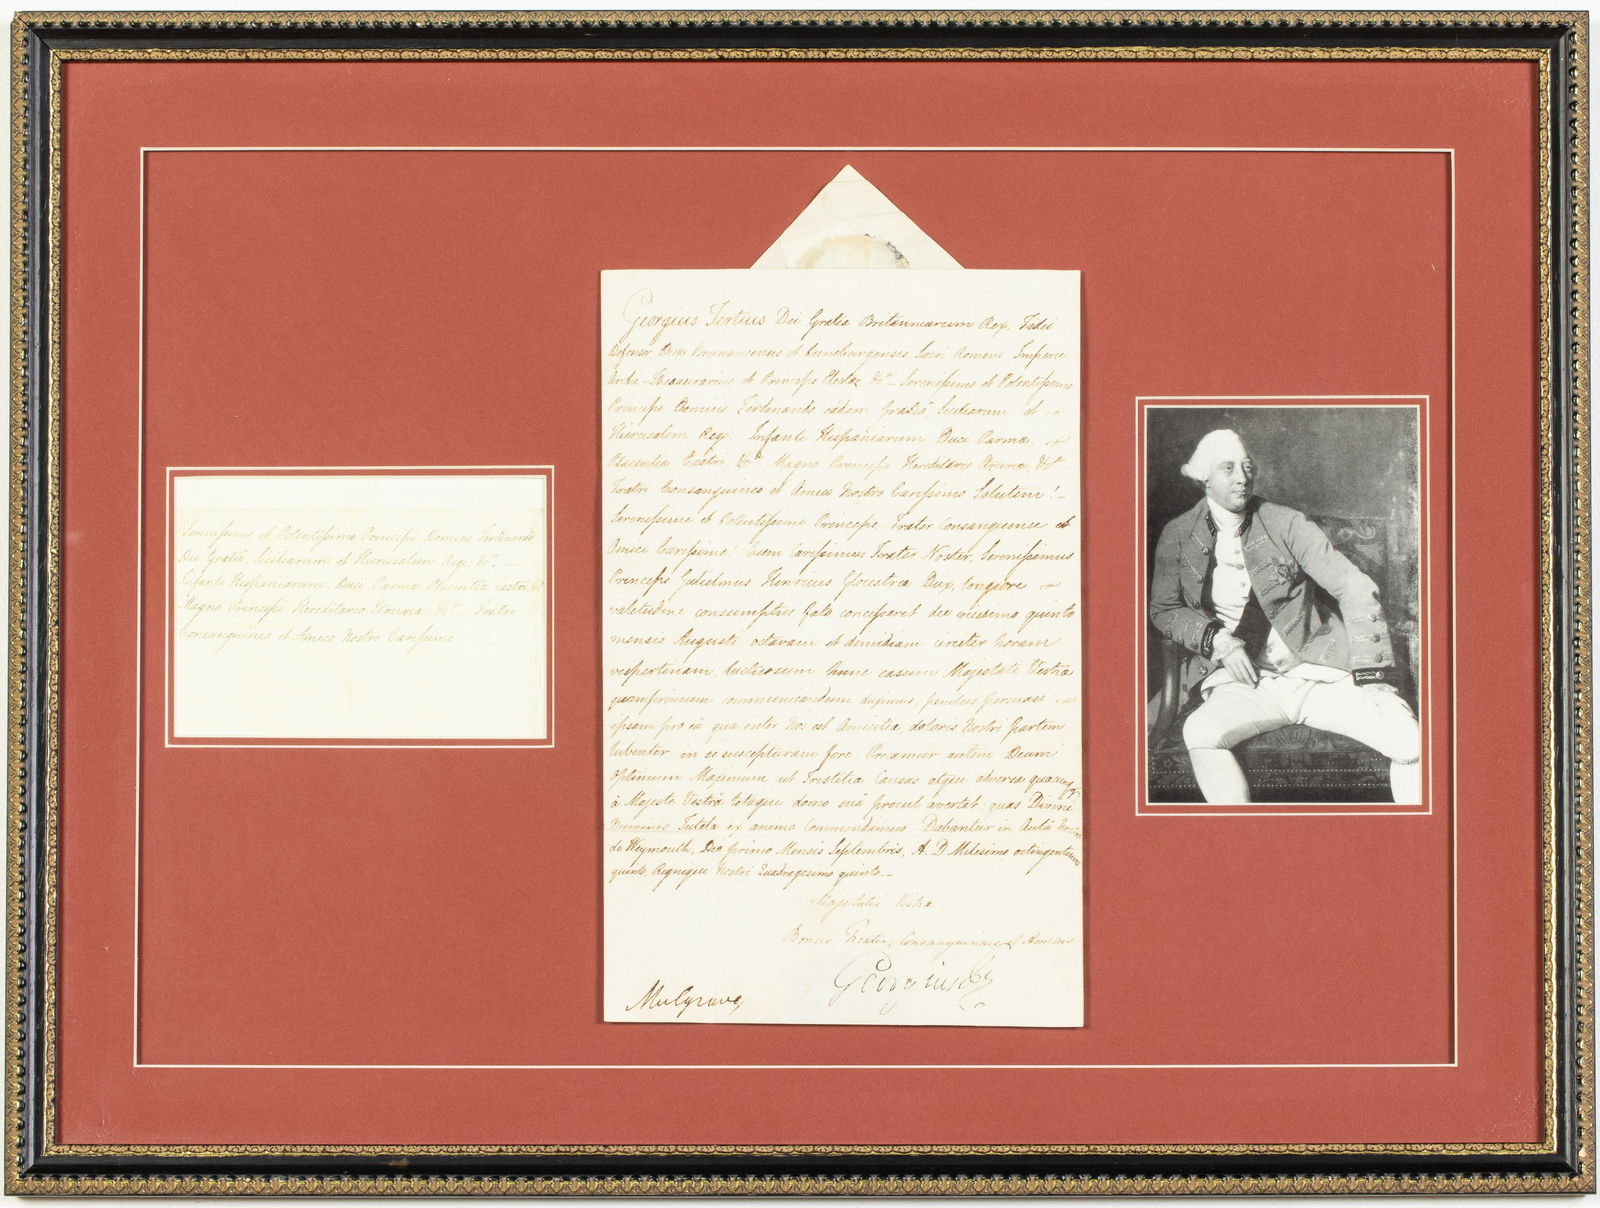 Serenissimo et Potentissimo Principi Domino Ferdinando
Dei Gratiâ, Siciliarum et Hierusalem Regi, &c.ᵃ —
Infanti Hispaniarum, Duci Parmæ Placentiæ Castri, &c.ᵃ
Magno Principi Hereditario Etruriæ, &c.ᵃ — Fratri
Consanguineo et Amico Nostro Carissimo.
Georgius Tertius Dei Gratia Britanniarum Rex, Fidei
Defensor, Dux Brunsvicensis et Luneburgensis Sacri Romani Imperii
Archi-Thesaurarius et Princeps Elector &c.ᵃ — Serenissimo et Potentissimo
Principi Domino Ferdinando eâdem Gratiâ Siciliarum et
Hierusalem Regi, Infanti Hispaniarum Duci Parmæ
Placentiæ Castri &c.ᵃ Magno Principi Hereditario Etruriæ, &c.ᵃ
Fratri Consanguineo et Amico Nostro Carissimo Salutem! —
Serenissime et Potentissime Princeps, Frater Consanguinee et
Amice Carissime! Cum Carissimus Frater Noster, Serenissimus
Princeps Gulielmus Henricus Glocestriæ Dux, longiore
valetudine consumptus fato concesserit die vicesimo quinto
mensis Augusti octavam et dimidiam circiter horam
vespertinam, luctuosum hunc casum Majestati Vestræ
quamprimum communicandum duximus, penitus persuasi
ipsam pro eâ quæ inter Nos est Amicitia, doloris Nostri partem
lubenter in se suscepturam fore. Precamur autem Deum
Optimum Maximum ut Tristitiæ Causas atque adversa quæcunq
à Majeste Vestrâ totaque domo suâ procul avertat; quas Divini
Numinis Tutelæ ex animo Commendamus Dabantur in Aulâ Nostrâ
de Weymouth, Die primo Mensis Septembris, A. D Milesimo octingentesimo
quinto, Regnique Nostri Quadragesimo quinto. —
Majestatis Vestræ
Bonus Frater, Consanguineus et Amicus
Georgius R
Mulgrave